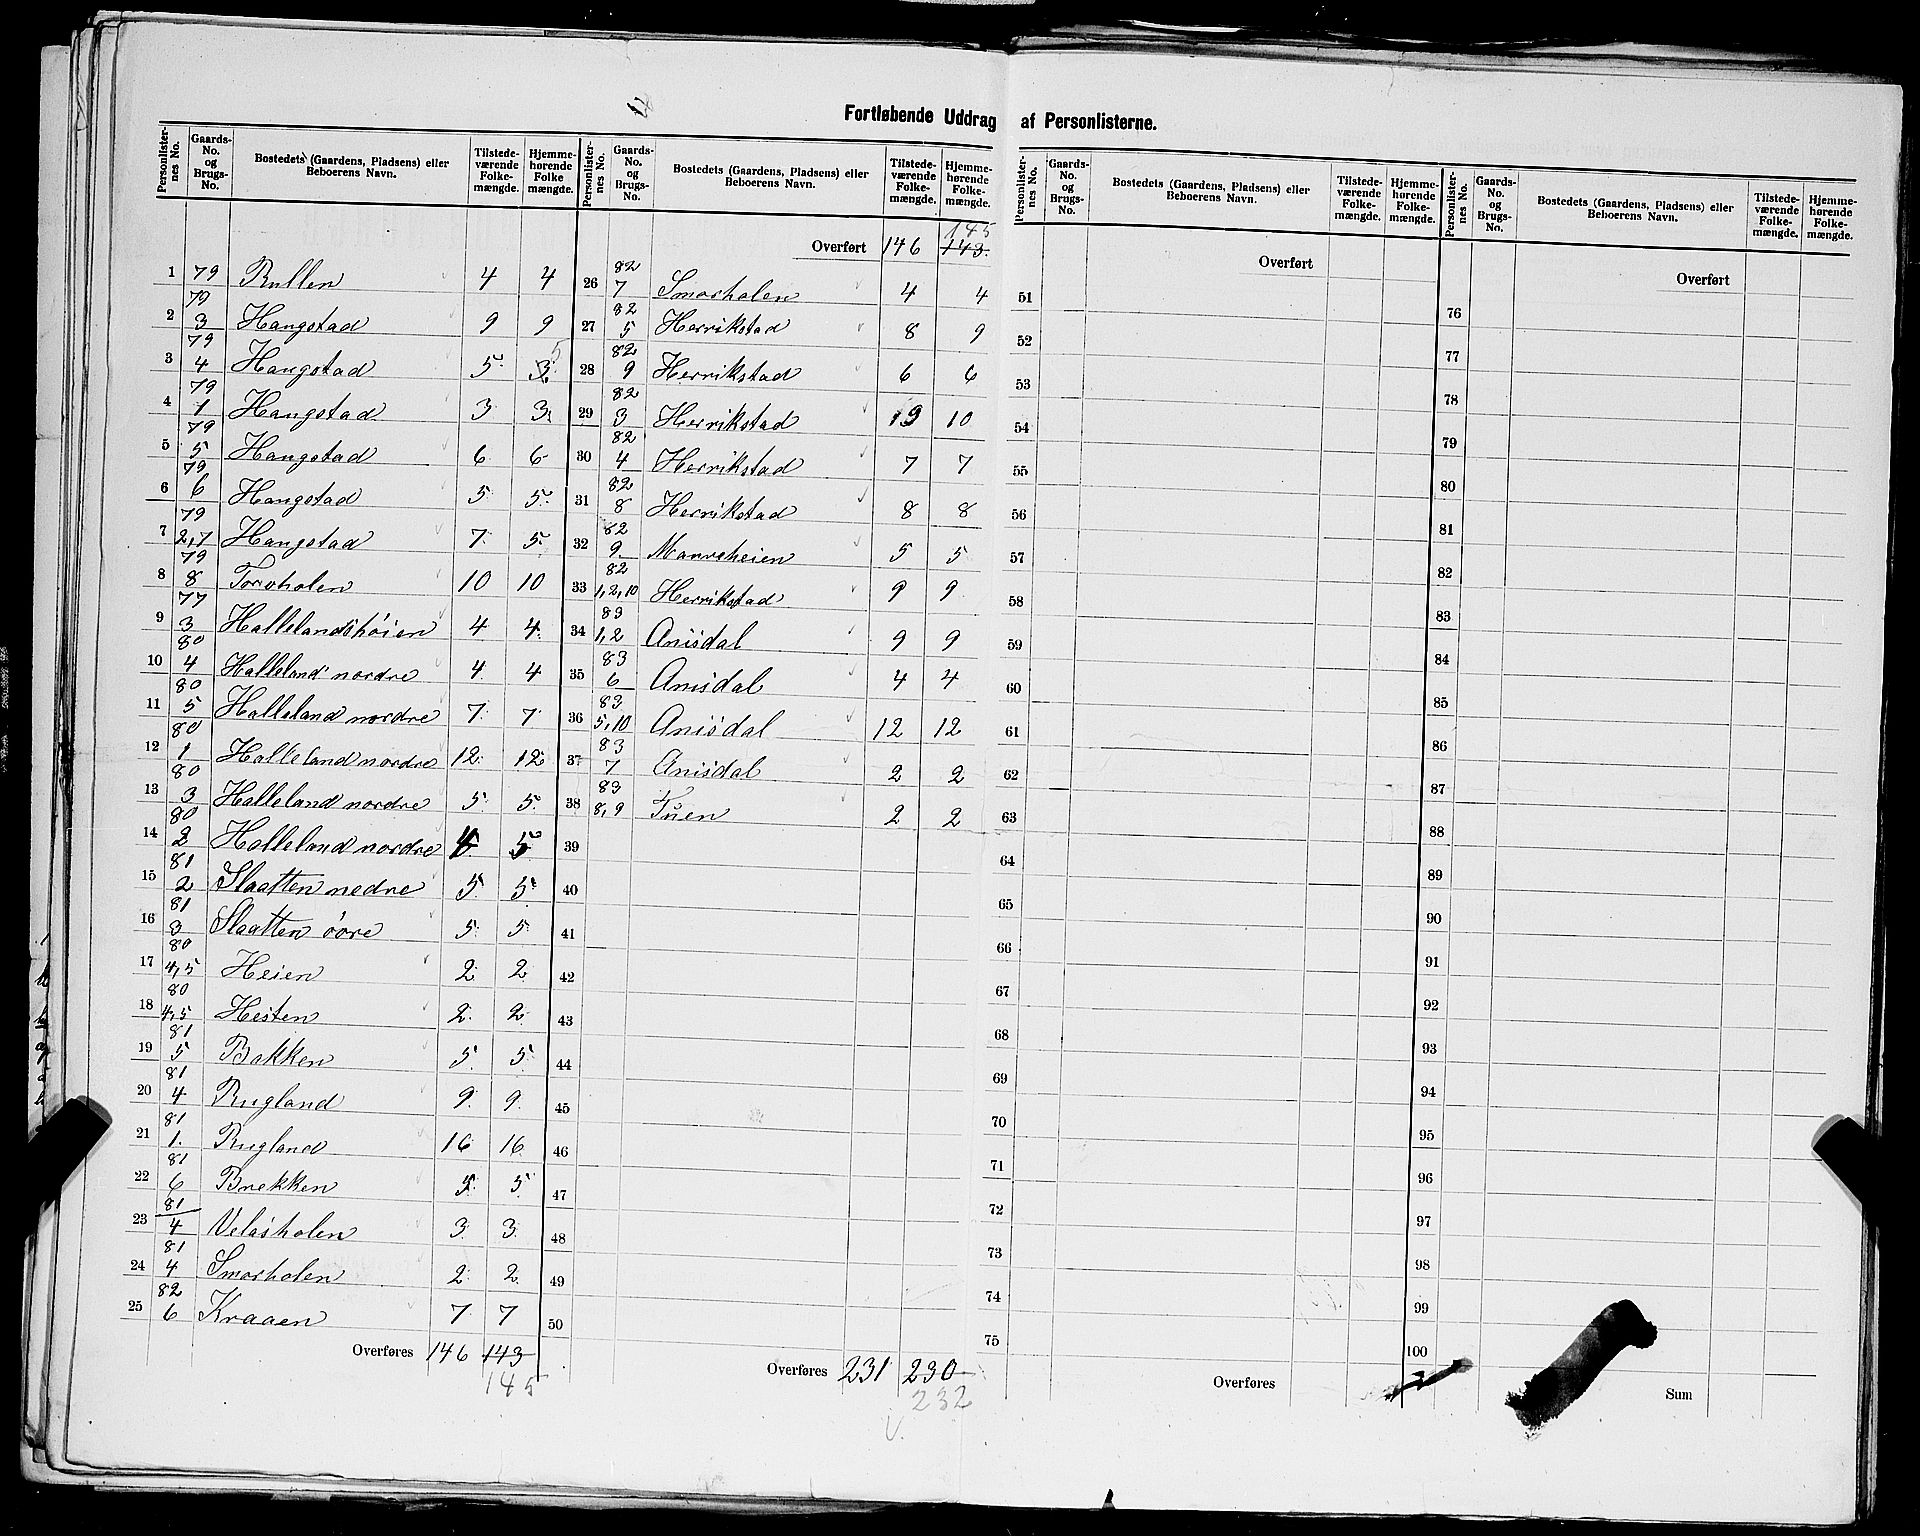 Fortløbende Uddrag af Personlisterne.
Personlister-nes No. Gaards-No. og Brugs-No. Bostedets (Gaardens, Pladsens) eller Beboerens Navn. Tilstede-værende Folke-mængde. Hjemme-hørende Folke mængde.
1 79 Rullen 4 4
2 79 3 Hangstad 9 9
3 79 4 Hangstad 5 3 5
4 79 1 Hangstad 3 3
5 79 5 Hangstad 6 6
6 79 6 Hangstad 5 5
7 79 2,7 Hangstad 7 5
8 79 8 Torvholen 10 10
9 77 3 Hallelandshöien 4 4
10 80 4 Halleland nordre 4 4
11 80 5 Halleland nordre 7 7
12 80 1 Halleland nordre 12 12
13 80 3 Halleland nordre 5 5
14 80 2 Halleland nordre 5
15 81 2 Slaatten nedre 5 5
16 81 3 Slaatten övre 5 5
17 80 4,5 Heien 2 2
18 80 4,5 Hesten 2 2
19 81 5 Bakken 5 5
20 81 4 Rugland 9 9
21 81 1. Rugland 16 16
22 81 6 Brekken 5 5
23 81 4 Velasholen 3 3
24 81 4 Smørholen 2 2
25 82 6 Kraaen 7 7
Overføres 146 143
145
Personlister-nes No. Gaards-No. og Brugs-No. Bostedets (Gaardens, Pladsens) eller Beboerens Navn. Tilstede-værende Folke-mængde. Hjemme-hørende Folke-mængde.
145
Overført 146 143.
26 82 7 Smørholen 4 4
27 82 5 Herrikstad 8 9
28 82 9 Herrikstad 6 6
29 82 3 Herrikstad 10
30 82 4 Herrikstad 7 7
31 82 8 Herrikstad 8 8
32 82 9 Manreheien 5 5
33 82 1,2,10 Herrikstad 9 9
34 83 1,2 Anisdal 9 9
35 83 6 Anisdal 4 4
36 83 5,10 Anisdal 12 12
37 83 7 Anisdal 2 2
38 83 8,9 Tuen 2 2
39
40
41
42
43
44
45
46
47
48
49
50
Overføres 231 230
232
V.
Personlister-nes No. Gaards-No. og Brugs-No. Bostedets (Gaardens, Pladsens) eller Beboerens Navn. Tilstede-værende Folke-mængde. Hjemme-hørende Folke-mængde.
Overført
51
52
53
54
55
56
57
58
59
60
61
62
63
64
65
66
67
68
69
70
71
72
73
74
75
Overføres
Personlister-nes No. Gaards-No. og Brugs-No. Bostedets (Gaardens, Pladsens) eller Beboerens Navn. Tilstede-værende Folke-mængde. Hjemme-hørende Folke-mængde.
Overført
76
77
78
79
80
81
82
83
84
85
86
87
88
89
90
91
92
93
94
95
96
97
98
99
100
Sum